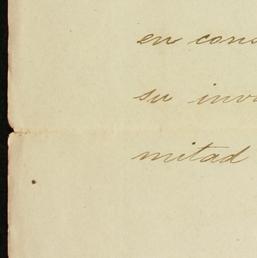 en cons
su inv
mitad